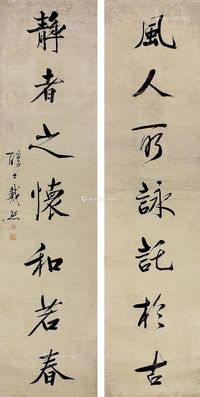 風人所詠託於古
靜者之懷和若春
醇士戴熙